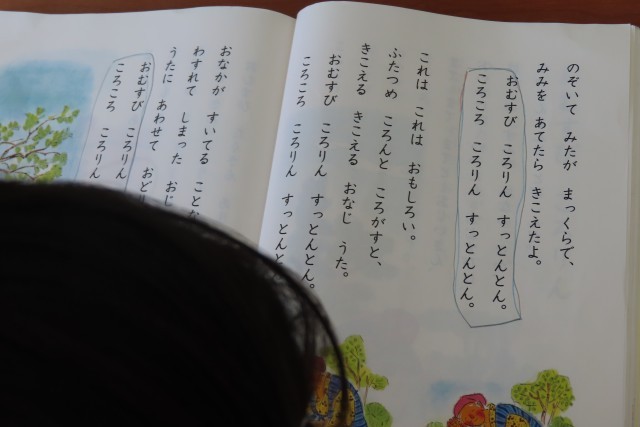 のぞいて みたが まっくらで、
みみを あてたら きこえたよ。
おむすび ころりん すっとんとん。
ころころ ころりん すっとんとん。
これは これは おもしろい。
ふたつめ ころんと ころがすと、
きこえる きこえる おなじ うた。
おむすび ころりん すっとんとん。
ころころ ころりん すっとんと
おなかが すいてる
わすれて しまった
うたに あわせて
おむすび ころりん
ころころ ころりん